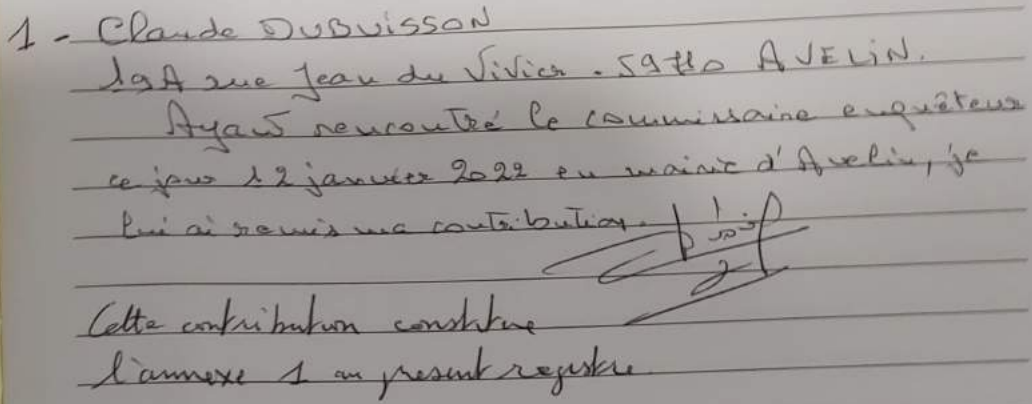 1 - Claude DUBUISSON
19A rue Jean du Vivier. 59710 AVELIN.
Ayant rencontré le commissaire enquêteur
ce jour 12 janvier 2022 en mairie d'Avelin, je
lui ai remis ma contribution.
Cette contribution constitue
l'annexe 1 au présent registre